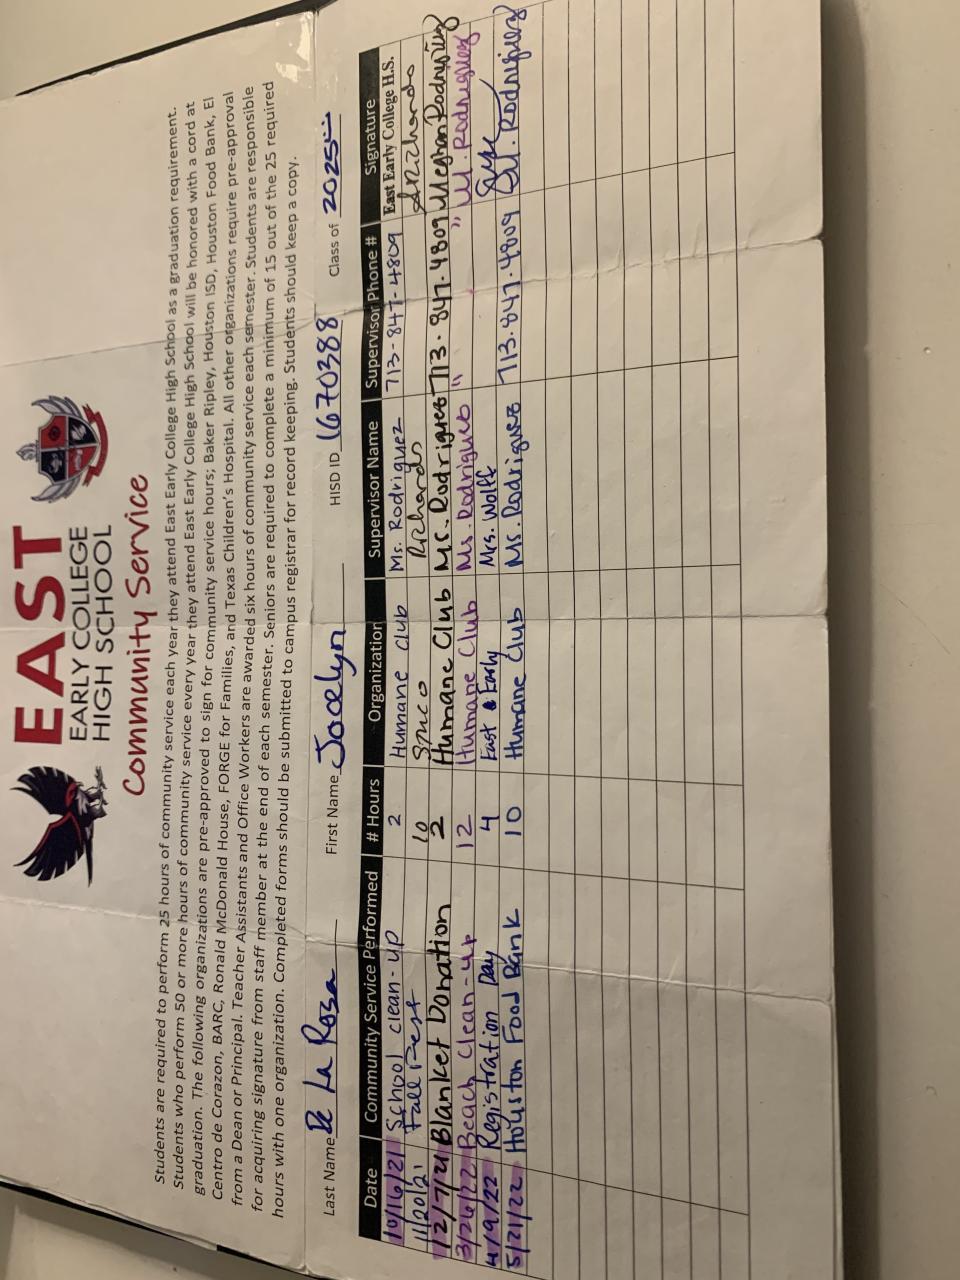 EAST
EARLY COLLEGE
HIGH SCHOOL
Community Service
Students are required to perform 25 hours of community service each year they attend East Early College High School as a graduation requirement.
Students who perform 50 or more hours of community service every year they attend East Early College High School will be honored with a cord at
graduation. The following organizations are pre-approved to sign for community service hours; Baker Ripley, Houston ISD, Houston Food Bank, El
Centro de Corazon, BARC, Ronald McDonald House, FORGE for Families, and Texas Children's Hospital. All other organizations require pre-approval
from a Dean or Principal. Teacher Assistants and Office Workers are awarded six hours of community service each semester. Students are responsible
for acquiring signature from staff member at the end of each semester. Seniors are required to complete a minimum of 15 out of the 25 required
hours with one organization. Completed forms should be submitted to campus registrar for record keeping. Students should keep a copy.
Last Name De La Rosa First Name Jocelyn HISD ID 1670388 Class of 2025
Date Community Service Performed # Hours Organization Supervisor Name Supervisor Phone # Signature
10/16/21 School clean-up 2 Humane Club Ms. Rodriguez 713-847-4809 East Early College H.S.
11/20/21 Fall Fest 10 Richards Richards
12/7/21 Blanket Donation 2 Humane Club Ms. Rodriguez 713.847.4809 Meghan Rodriguez
3/26/22 Beach Clean-up 12 Humane Club Ms. Rodriguez " " M. Rodriguez
4/9/22 Registration Day 4 East Early Mrs. Wolff
5/21/22 Houston Food Bank 10 Humane Club Ms. Rodriguez 713.847.4809 M. Rodriguez